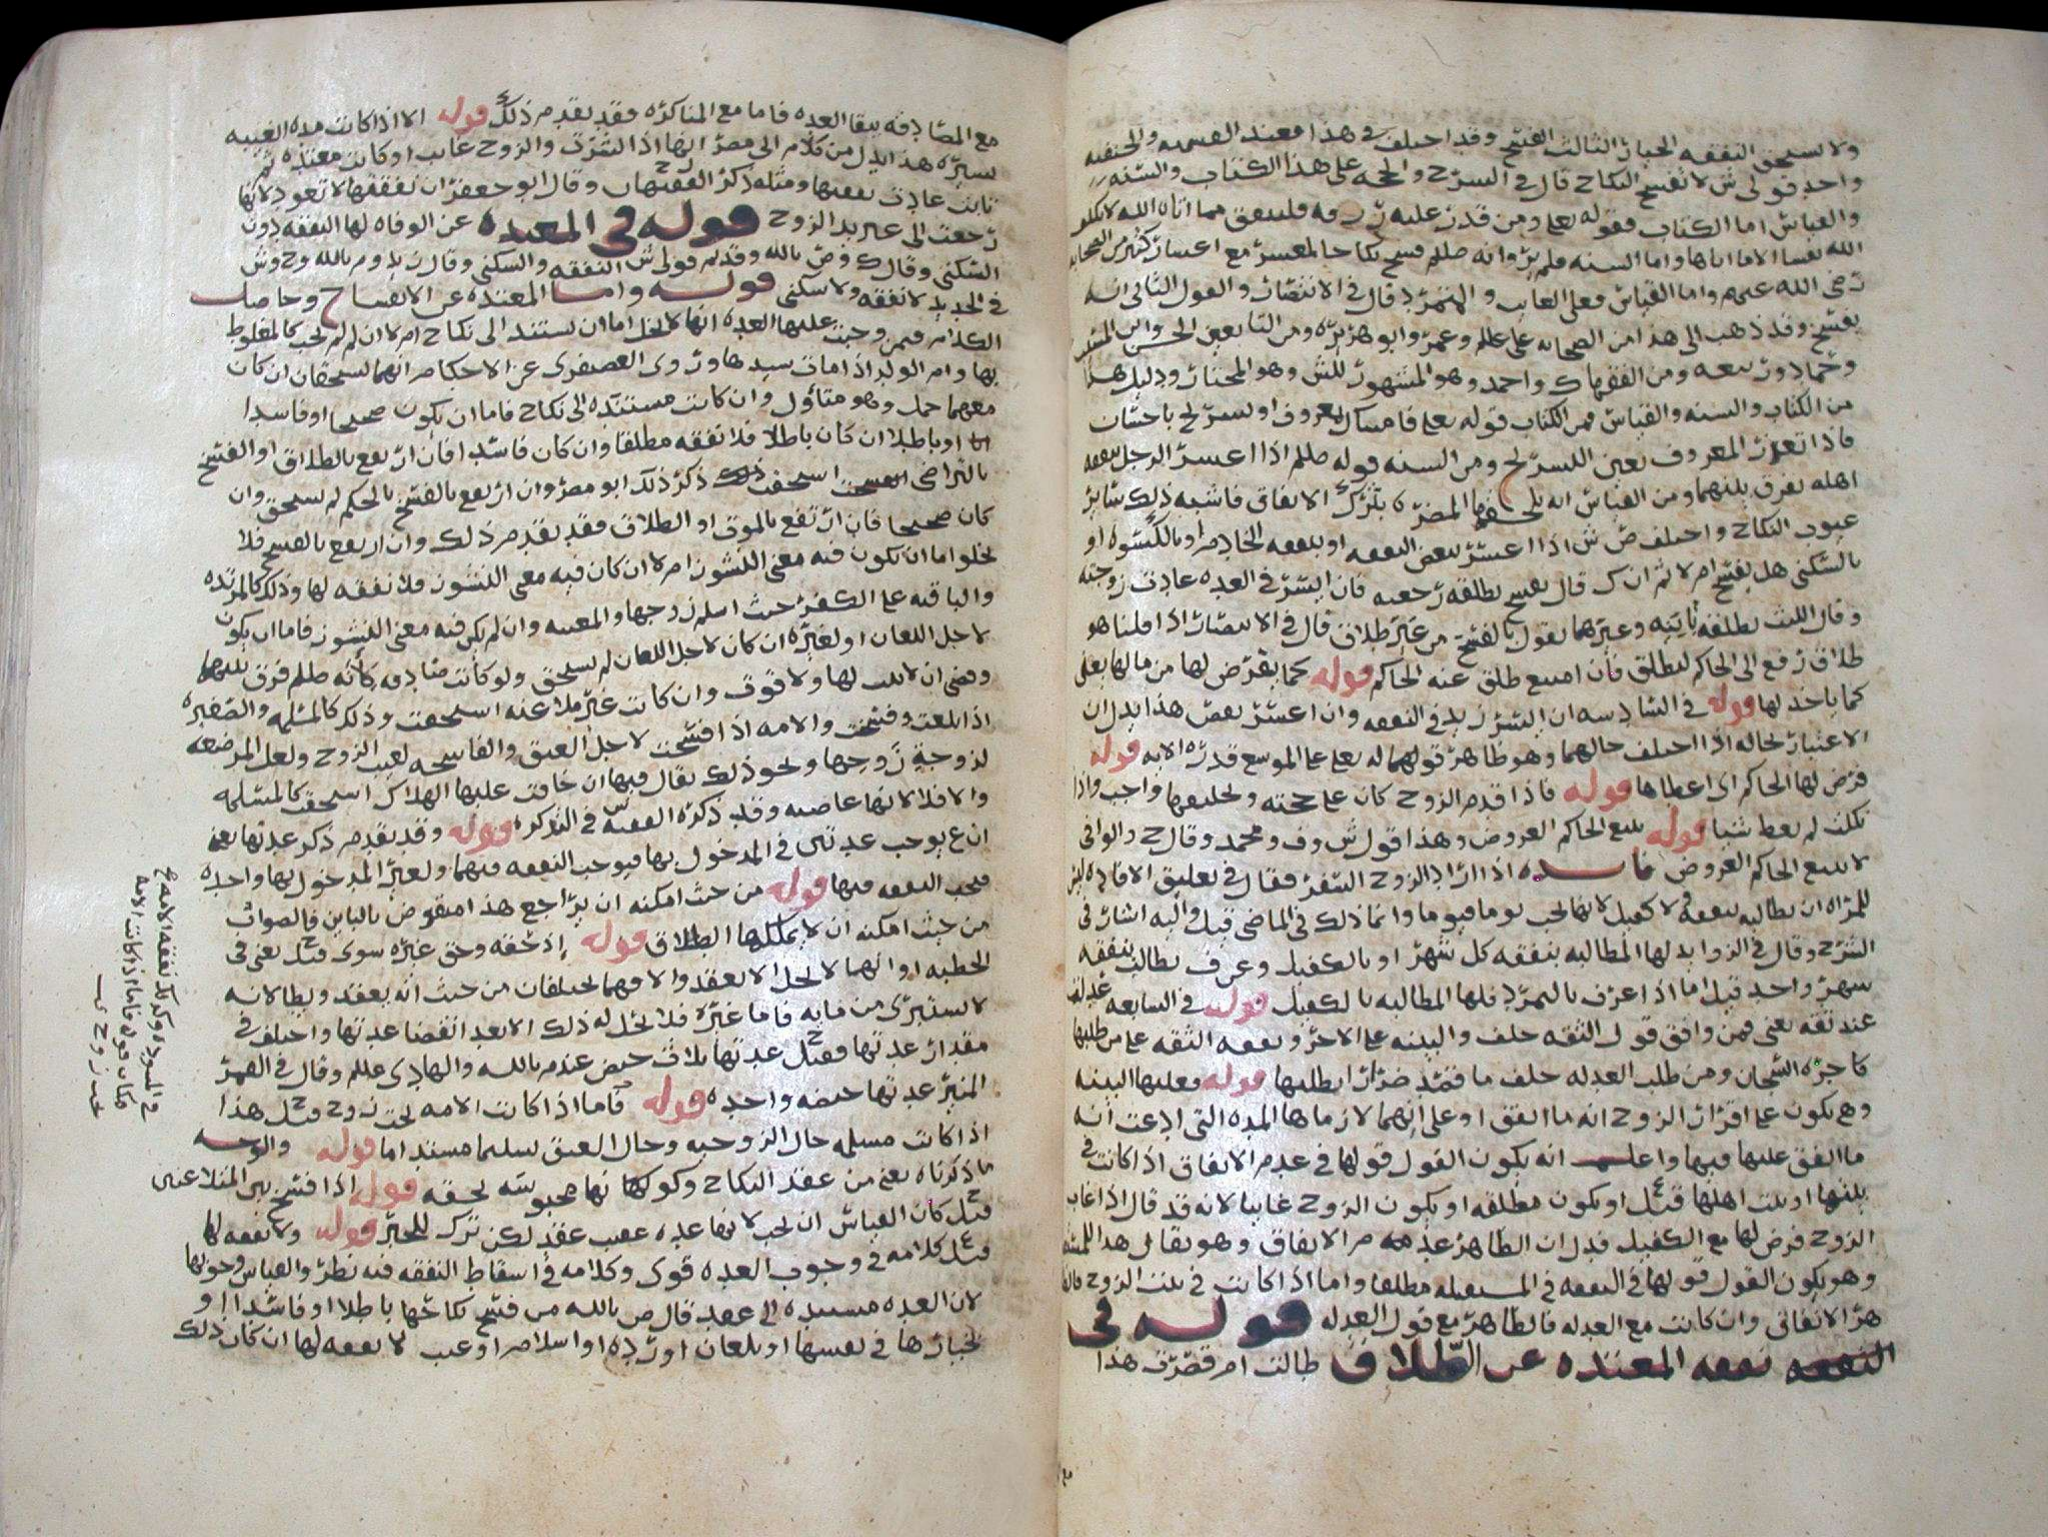 ولا تستحق النفقه الخيار الثالث الفسخ وقد اختلف في هذا فعند القسميه والحنفيه
واحد قولي ش لا تفسخ النكاح قال في السرح والحجه على هذا الكتاب والسنه
والقياس اما الكتاب فقوله تعلى ومن قدر عليه رزقه فلينفق مما اتاه الله لا يكلف
الله نفسا الا ما اتاها واما السنه فلم يروا انه صللم فسخ نكاحا لمعسر مع اعسار كثير من الصحابه
رضي الله عنهم واما القياس فعلى الغايب والمتمرد قال في الانتصار والقول الثاني انه
يفسخ وقد ذهب الى هذا من الصحابه علي علالم وعمر وابو هريره ومن التابعين الحسن وابن المسيب
وحماد وربيعه ومن الفقها ك واحمد وهو المشهور للش وهو المختار ودليل هذا
من الكتاب والسنه والقياس فمن الكتاب قوله تعلى فامساك بمعروف او تسريح باحسان
فاذا تعذر المعروف تعين التسريح ومن السنه قوله صللم اذا اعسر الرجل بنفقه
اهله يفرق بينهما ومن القياس انه يلحقها المضره بترك الانفاق فاشبه ذلك ساير
عيوب النكاح واختلف ص ش اذا اعسر ببعض النفقه او بنفقه الخادم او بالكسوه او
بالسكنى هل يفسخ ام لا ثم ان ك قال يفسخ بطلقه رجعيه فان ايسر في العده عادت زوجته
وقال الليث بطلقه باينه وغيرهما يقول بالفسخ من غير طلاق قال في الانتصار اذا قلنا هو
طلاق رفع الى الحاكم ليطلق فان امتنع طلق عنه الحاكم قوله كما يفرض لها من مالها يعنى
كما ياخذ لها قوله في السادسه ان ايسر زيد في النفقه وان اعسر نقص هذا يدل ان
الاعتبار بحاله اذا اختلف حالهما وهو ظاهر قولهما له تعلى على الموسع قدره الايه قوله
فرض لها الحاكم اى اعطاها قوله فاذا قدم الزوج كان على حجته ولحليفها واجب واذا
نكلت لم تعط شيا قوله يبيع الحاكم العروض وهذا قول ش وف ومحمد وقال ح والوافي
لا يبيع الحاكم العروض فايده اذا اراد الزوج السفر فقال في تعليق الافاده ليس
للمراه ان تطالبه بنفقه ولا كفيل لانها تجب يوما فيوما وانما ذلك في الماضي قيل واليه اشار في
الشرح وقال في الزوايد لها المطالبه بنفقه كل شهر او بالكفيل وعرف يطالب بنفقه
شهر واحد قيل اما اذا عرف بالتمرد فلها المطالبه بالكفيل قوله في السابعه عدله
عند ثقه يعنى فمن وافق قول الثقه حلف والبينه على الاخر ونفقه الثقه على من طلبها
كاجره السجان ومن طلب العدله حلف ما قصد ضرارا بطلبها قوله فعليها البينه
وهي تكون على اقرار الزوج انه ما انفق او على انهما لازماها المده التي ادعت انه
ما انفق عليها فيها واعلم انه يكون القول قولها في عدم الانفاق اذا كانت في
بيتها او بيت اهلها قيل او تكون مطلقه او يكون الزوج غايبا لانه قد قال اذا غاب
الزوج فرض لها مع الكفيل فدل ان الظاهر عدمه من الانفاق وهو يقال هذا
وهو يكون القول قولها في النفقه في المستقبله مطلقا واما اذا كانت في بيت الزوج
هر الانفاق وان كانت مع العدله فالظاهر مع قول العدله قوله في
النفقه نفقه المعتده عن الطلاق طالت ام قصرت هذا
مع المصادقه ببقا العده فاما مع المناكره فقد تقدم ذلك قوله الا اذا كانت مده الغيبه
يسيره هذا يدل من كلام ابى مضر انها اذا نشزت والزوج غايب او كانت معتده ثم
تابت عادت نفقتها ومثله ذكر الفقيهان وقال ابو جعفر ان نفقتها لا تعود لانها
رجعت الى غير يد الزوج قوله في المعتده عن الوفاه لها النفقه دون
السكنى وقال ك وص بالله وقديم قولي ش النفقه والسكنى وقال زيد وم بالله وح وش
في الجديد لا نفقه ولا سكنى قوله واما المعتده عن الانفساخ وحاصل
الكلام فيمن وجبت عليها العده انها لا تخلو اما ان تستند الى نكاح ام لا ان لم لم تجب كالمغلوط
بها وام الولد اذا مات سيدها وروى العصيفرى عن الاحكام انهما تستحقان ان كان
معهما حمل وهو متاول وان كانت مستنده الى نكاح فاما ان يكون صحيحا او فاسدا
او باطلا ان كان باطلا فلا نفقه مطلقا وان كان فاسدا فان ارتفع بالطلاق او الفسخ
بالتراضي استحقت ذكر ذلك ابو مضر وان ارتفع بالفسخ بالحكم لم تستحق وان
كان صحيحا فان ارتفع بالموت او الطلاق فقد تقدم ذلك وان ارتفع بالفسخ فلا
يخلوا اما ان يكون فيه معنى النشوز ام لا ان كان فيه معنى النشوز فلا نفقه لها وذلك كالمرتده
والباقيه على الكفر حيث اسلم زوجها والمعيبه وان لم يكن فيه معنى النشوز فاما ان يكون
لاجل اللعان او لغيره ان كان لاجل اللعان لم تستحق ولو كانت صادقه كانه صللم فرق بينهما
وقضى ان لا بيت لها ولا قوت وان كانت غير ملاعنه استحقت وذلك كالمسلمه والصغيره
اذا بلغت وفسخت والامه اذا فسخت لاجل العتق والفاسخه لعيب الزوج ولعل المرضعه
لزوجة زوجها ونحو ذلك يقال فيها ان خافت عليها الهلاك استحقت كالمسلمه
والا فلا لانها عاصيه وقد ذكره الفقيه س في التذكره قوله وقد تقدم ذكر عدتها يعنى
ان ع يوجب عدتين في المدخول بها فيوجب النفقه فيهما ولغير المدخول بها واحده
فتجب النفقه فيها قوله من حيث امكنه ان يراجع هذا منقوض بالباين فالصواب
من حيث امكنه ان لا يملكها الطلاق قوله اذ حقه وحق غيره سوى قيل يعنى في
الخطبه او انهما لا تحل الا بعقد والا فهما يختلفان من حيث انه يعقد ويطا لانه
لا يستبرى من مايه فاما غيره فلا تحل له ذلك الا بعد انقضا عدتها واختلف في
مقدار عدتها فقيل عدتها بثلاث حيض عند م بالله والهادى علالم وقال في المهر
المنير عدتها حيضه واحده قوله فاما اذا كانت الامه تحت زوج قيل هذا
اذا كانت مسلمه حال الزوجيه وحال العتق تسليما مستداما قوله والوجه
ما ذكرناه يعنى من عقد النكاح وكونها محبوسه بحقه قوله اذا فسخ بين المتلاعنين
قيل كان القياس ان تجب لانها عده عقيب عقد لكن ترك للخبر قوله ولا نفقه لها
قيل كلامه في وجوب العده قوى وكلامه في اسقاط النفقه فيه نظر والقياس وجوبها
لان العده مستنده الى عقد قال ص بالله من فسخ نكاحها باطلا او فاسدا او
بخيارها في نفسها او بلعان او رده او اسلام او عيب لا نفقه لها ان كان ذلك
وكذلك نفقه الامه
مكان قوله فاما اذا كانت الامه
تحت زوج